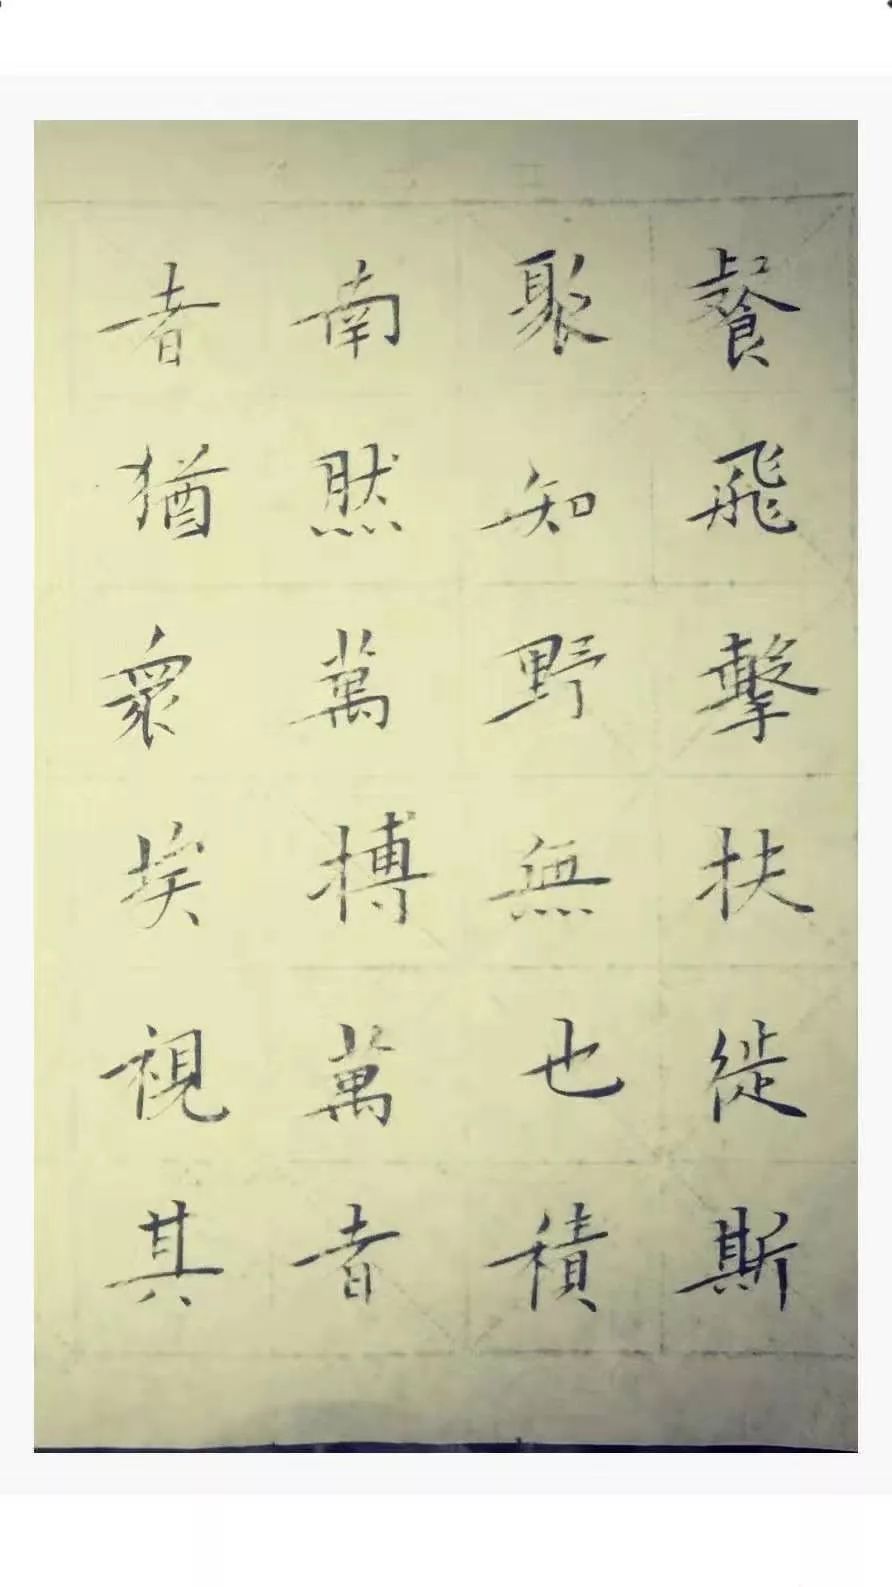 餐飛擊扶徙斯
聚知野無也積
南然萬搏萬者
者猶衆埃視其